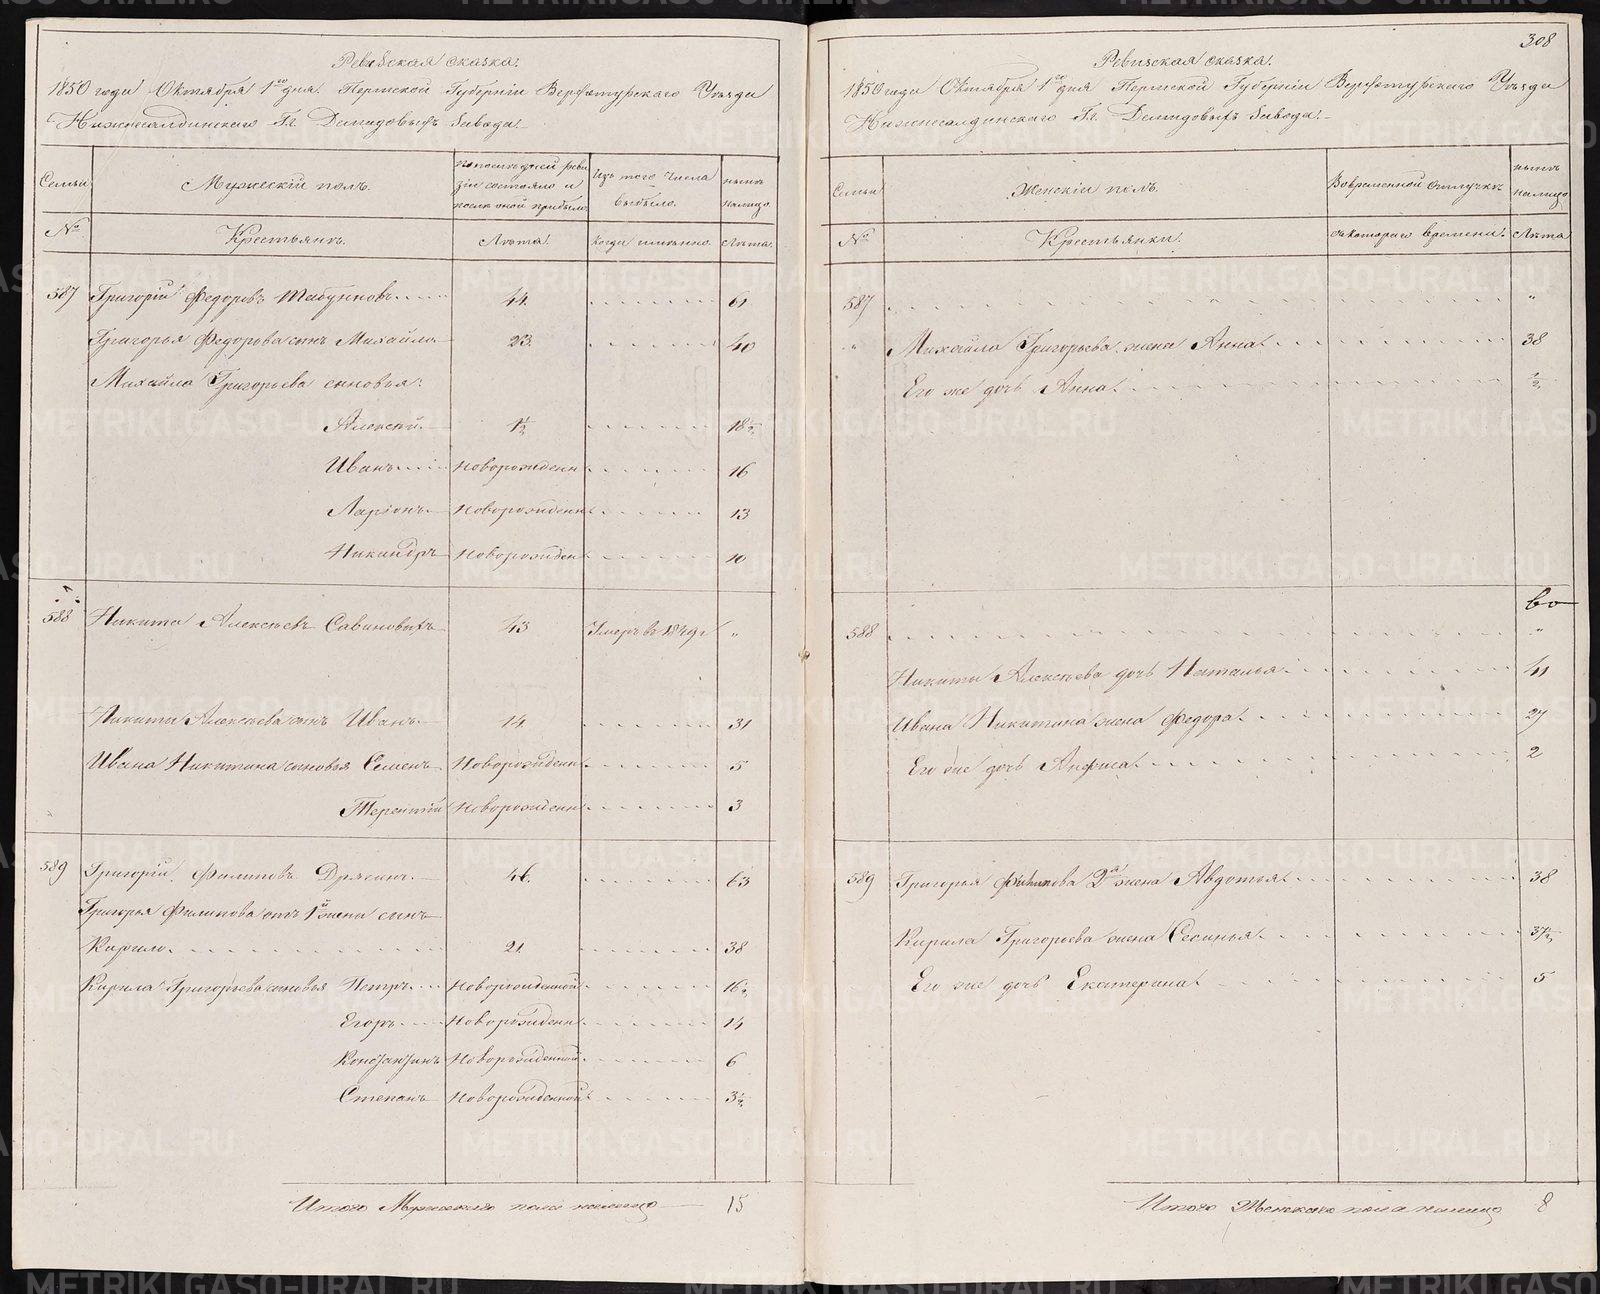 Ревизская сказка.
1850 года Октября 1го дня. Пермской Губерніи Верхотурскаго Уѣзда
Нижнесалдинскаго Гг. Демидовыхъ Завода.
Семьи
Мужескій полъ.
По последней ревизіи состояло и после оной прибыло
Изъ того числа выбыло.
ныне на лицо.
№
Крестьянъ.
Лѣта.
Когда именно.
Лѣта.
587 Григорій Федоровъ Табунковъ 44. 61
Григорья Федорова сынъ Михайло 23. 40
Михайла Григорьева сыновья:
Алексѣй 1½ 18½
Иванъ Новорожденн. 16
Ларіонъ Новорожденн. 13
Никандръ Новорожден. 10
588 Никита Алексѣевъ Савиновыхъ 43 Умеръ въ 1849 г „
Никиты Алексѣева сынъ Иванъ 14 31
Ивана Никитина сыновья Семенъ Новорожденн. 5
Терентій Новорожденн. 3
589 Григорій Филиповъ Дрягинъ 46. 63
Григорья Филипова отъ 1й жены сынъ
Кирило 21. 38
Кирила Григорьева сыновья Петръ Новорожденной 16½
Егоръ Новорожденн. 14
Константинъ Новорожденной 6
Степанъ Новорожденной 3½
Итого Мужескаго пола на лицо 15
308
Ревизская сказка.
1850 года Октября 1го дня Пермской Губерніи Верхотурскаго Уѣзда
Нижнесалдинскаго Гг. Демидовыхъ Завода.
Семьи
Женскій полъ.
Во временной отлучке
ныне на лицо
№
Крестьянки.
съ котораго времени.
Лѣта
587 „
„ Михайла Григорьева жена Анна 38
Его же дочь Анна ½
588 „
Никиты Алексѣева дочь Наталья 41
Ивана Никитина жена Федора 27
Его же дочь Анфиса 2
589 Григорья Филипова 2я жена Авдотья 38
Кирила Григорьева жена Аксинья 37½
Его же дочь Екатерина 5
Итого Женскаго пола на лицо 8
METRIKI.GASO-URAL.RU